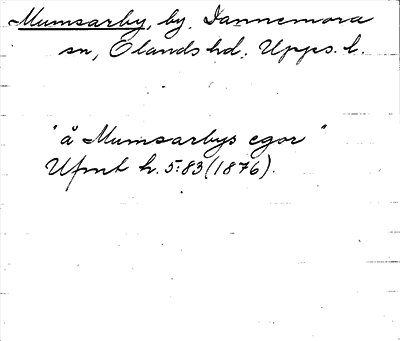 Mumsarby, by. Dannemora
sn, Olands hd. Upps. l.
"å Mumsarbys egor"
Ufmt h. 5:83 (1876).